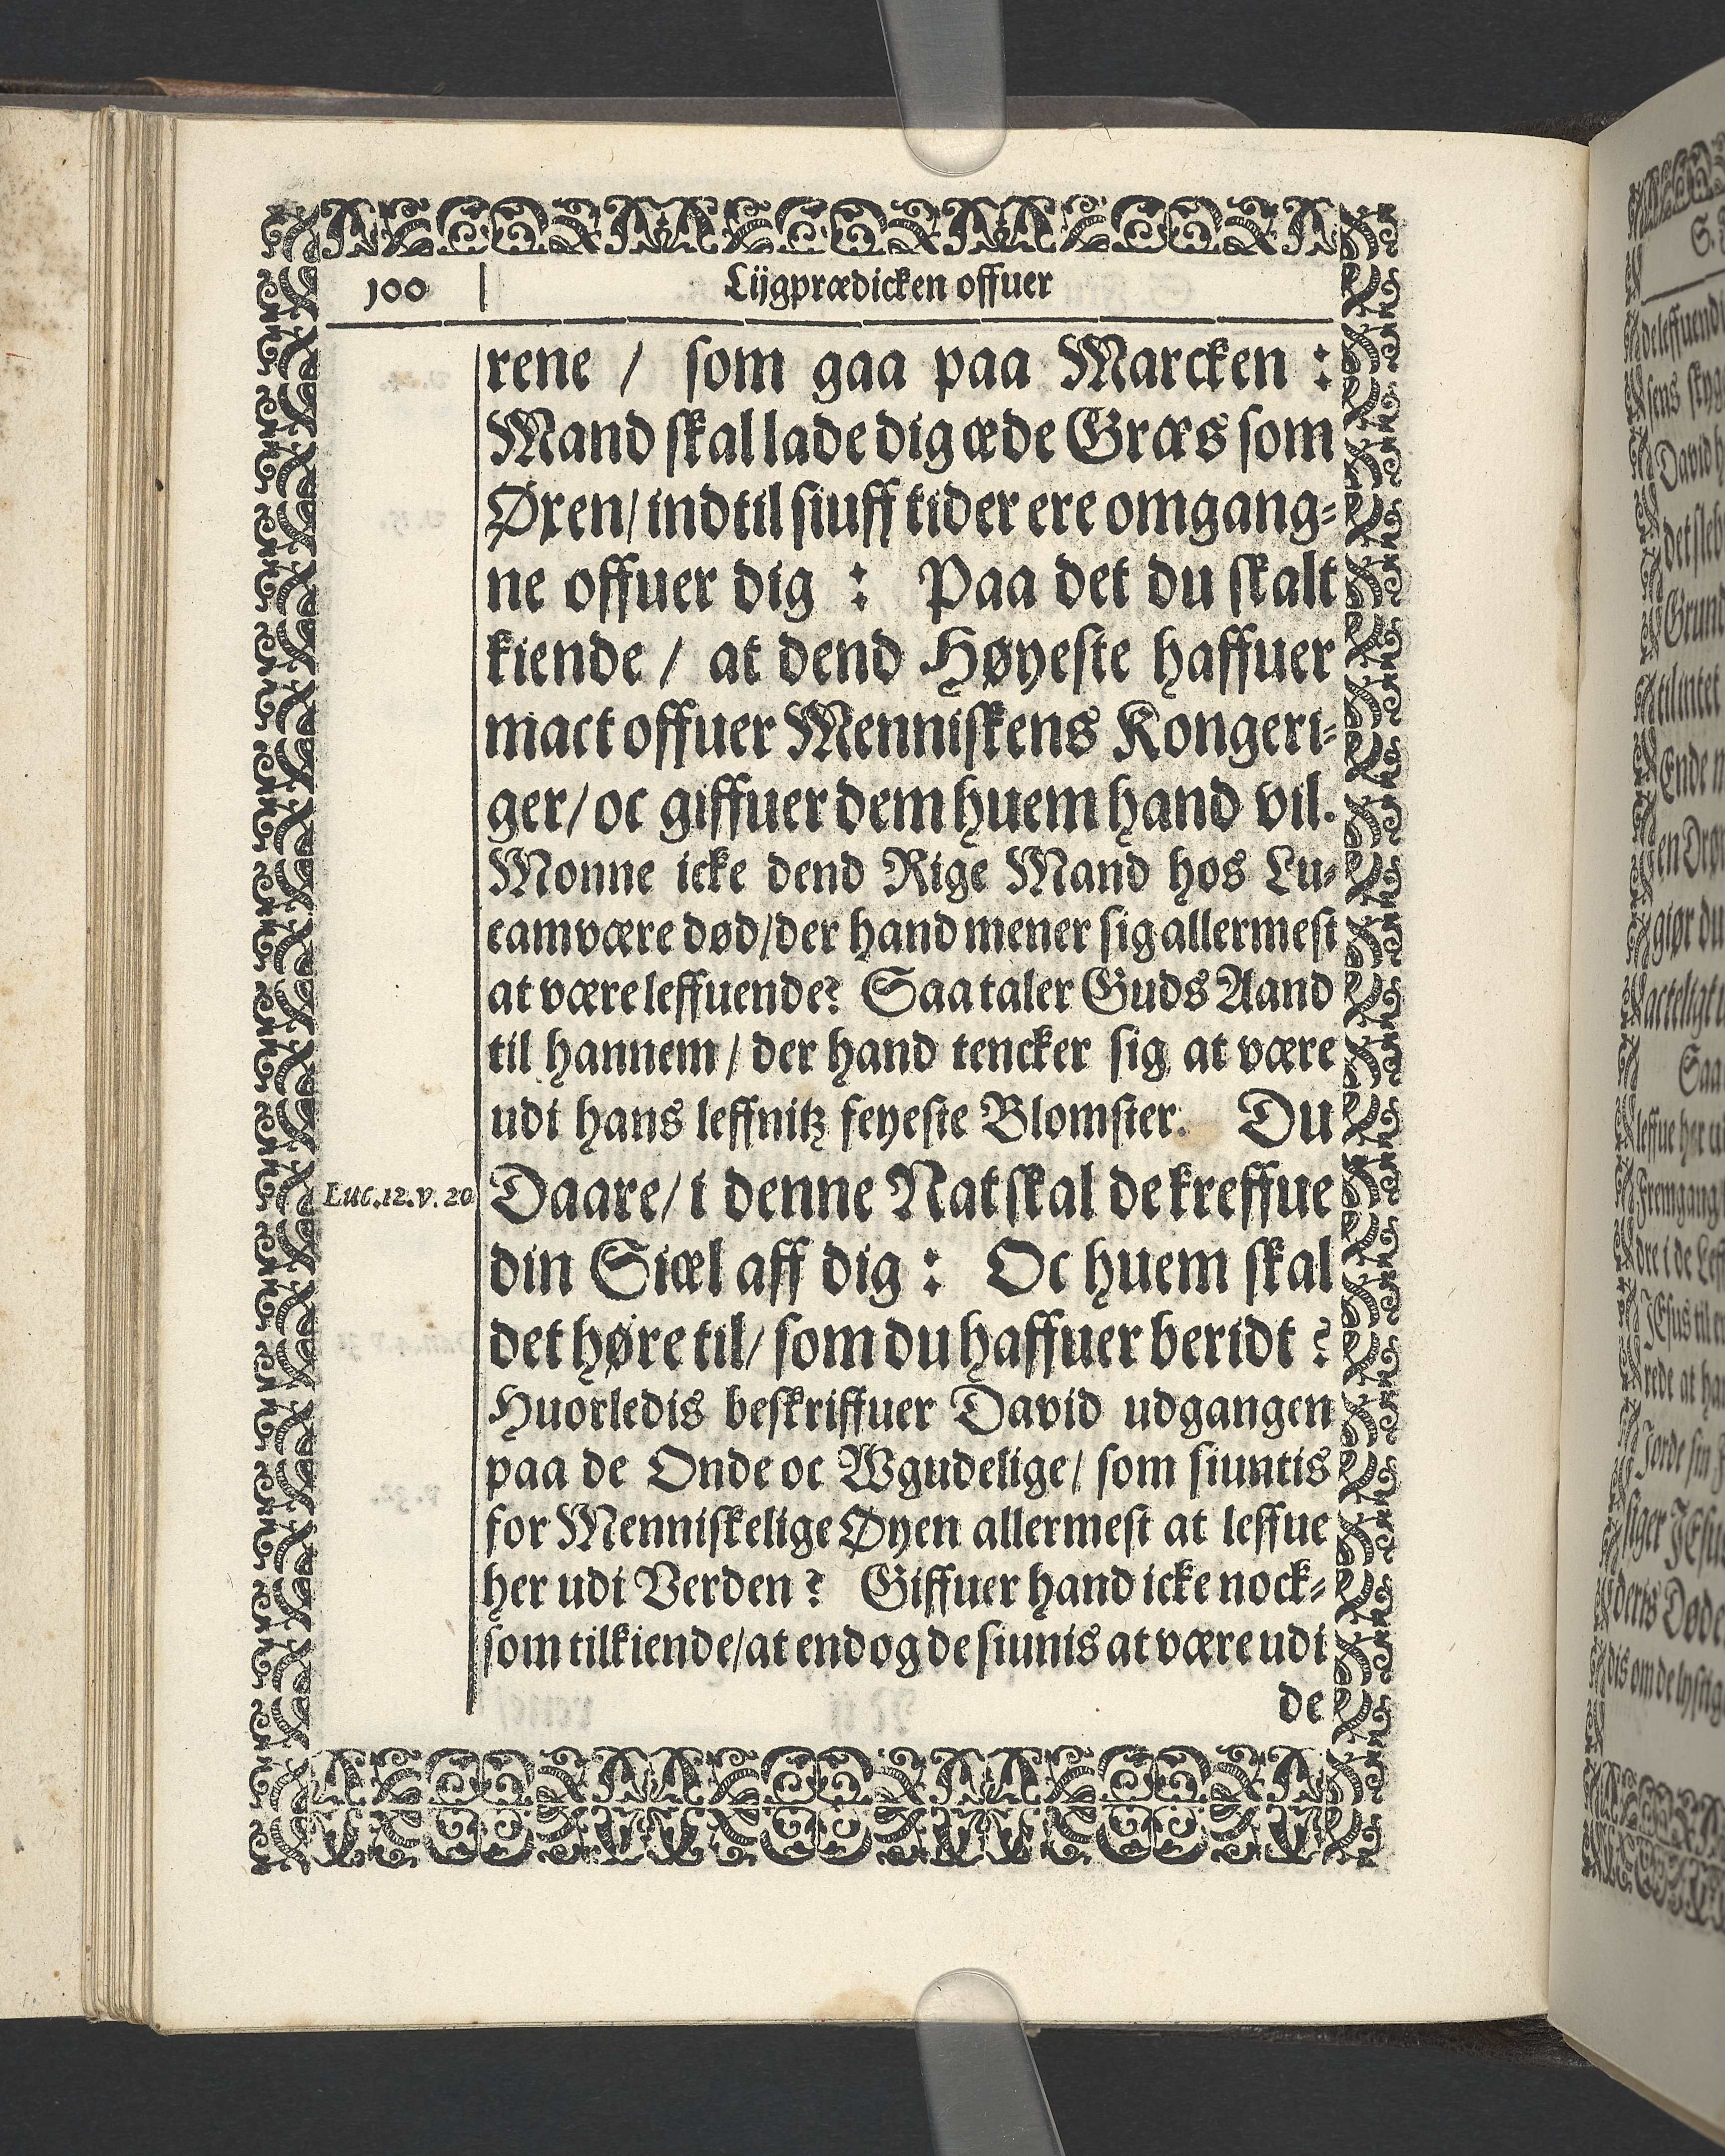 100 Lijgprædicken offuer
rene / som gaa paa Marcken :
Mand skal lade dig æde Græs som
Øxen/ indtil siuff tider ere omgang=
ne offuer dig : Paa det du skalt
kiende / at dend Høyeste haffuer
mact offuer Menniskens Kongeri=
ger/ oc giffuer dem huem hand vil.
Monne icke dend Rige Mand hos Lu=
cam være død/ der hand mener sig allermest
at være leffuende? Saa taler Guds Aand
til hannem / der hand tencker sig at være
udi hans leffnitz feyeste Blomster. Du
Luc.12.v.20
Daare/ i denne Nat skal de kreffue
din Siæl aff dig : Oc huem skal
det høre til/ som du haffuer beridt ?
Huorledis beskriffuer David udgangen
paa de Onde oc Wgudelige/ som siuntis
for Menniskelige Øyen allermest at leffue
her udi Verden ? Giffuer hand icke nock=
som tilkiende/ at endog de siunis at være udi
de